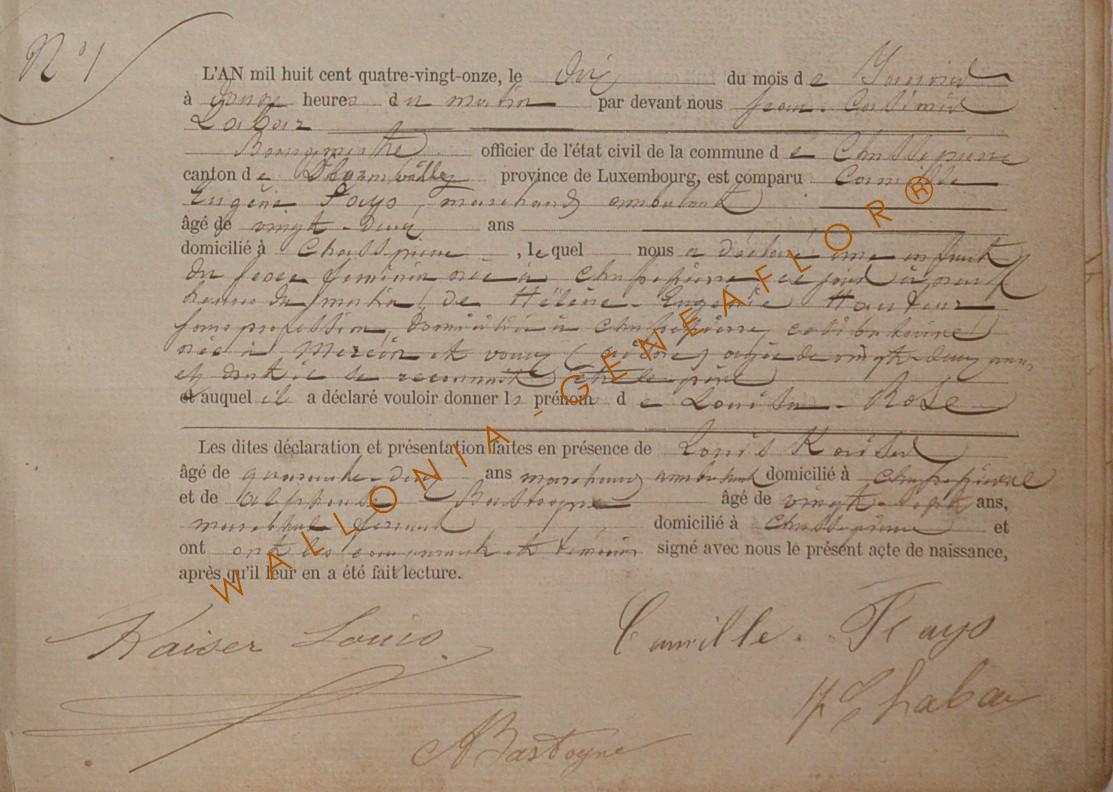 N° 1
L'AN mil huit cent quatre-vingt-onze, le dix du mois de Janvier
à onze heures du matin par devant nous Jean-Casimir
Labar
Bourgmestre officier de l'état civil de la commune de Chassepierre
canton de province de Luxembourg, est comparu Camille
Eugène Fays, marchand ambulant
âgé de vingt-deux ans
domicilié à Chassepierre, lequel nous a déclaré une enfant
du sexe féminin née à Chassepierre ce jour à neuf
heures du matin, de Hélène-Eugénie
sans profession, domiciliée à Chassepierre, célibataire
née à et âgée de vingt-deux ans
et dont il se reconnaît être le père
et auquel il a déclaré vouloir donner les prénom de Louise-Rose
Les dites déclaration et présentation faites en présence de Louis Kaiser
âgé de quarante-deux ans marchand ambulant domicilié à Chassepierre
et de Alphonse Bastogne âgé de vingt-sept ans,
maréchal ferrant domicilié à Chassepierre et
ont les comparant et témoins signé avec nous le présent acte de naissance,
après qu'il leur en a été fait lecture.
Kaiser Louis. Camille Fays
Labar
A Bastogne
WALLONIA - GENEAFLOR®